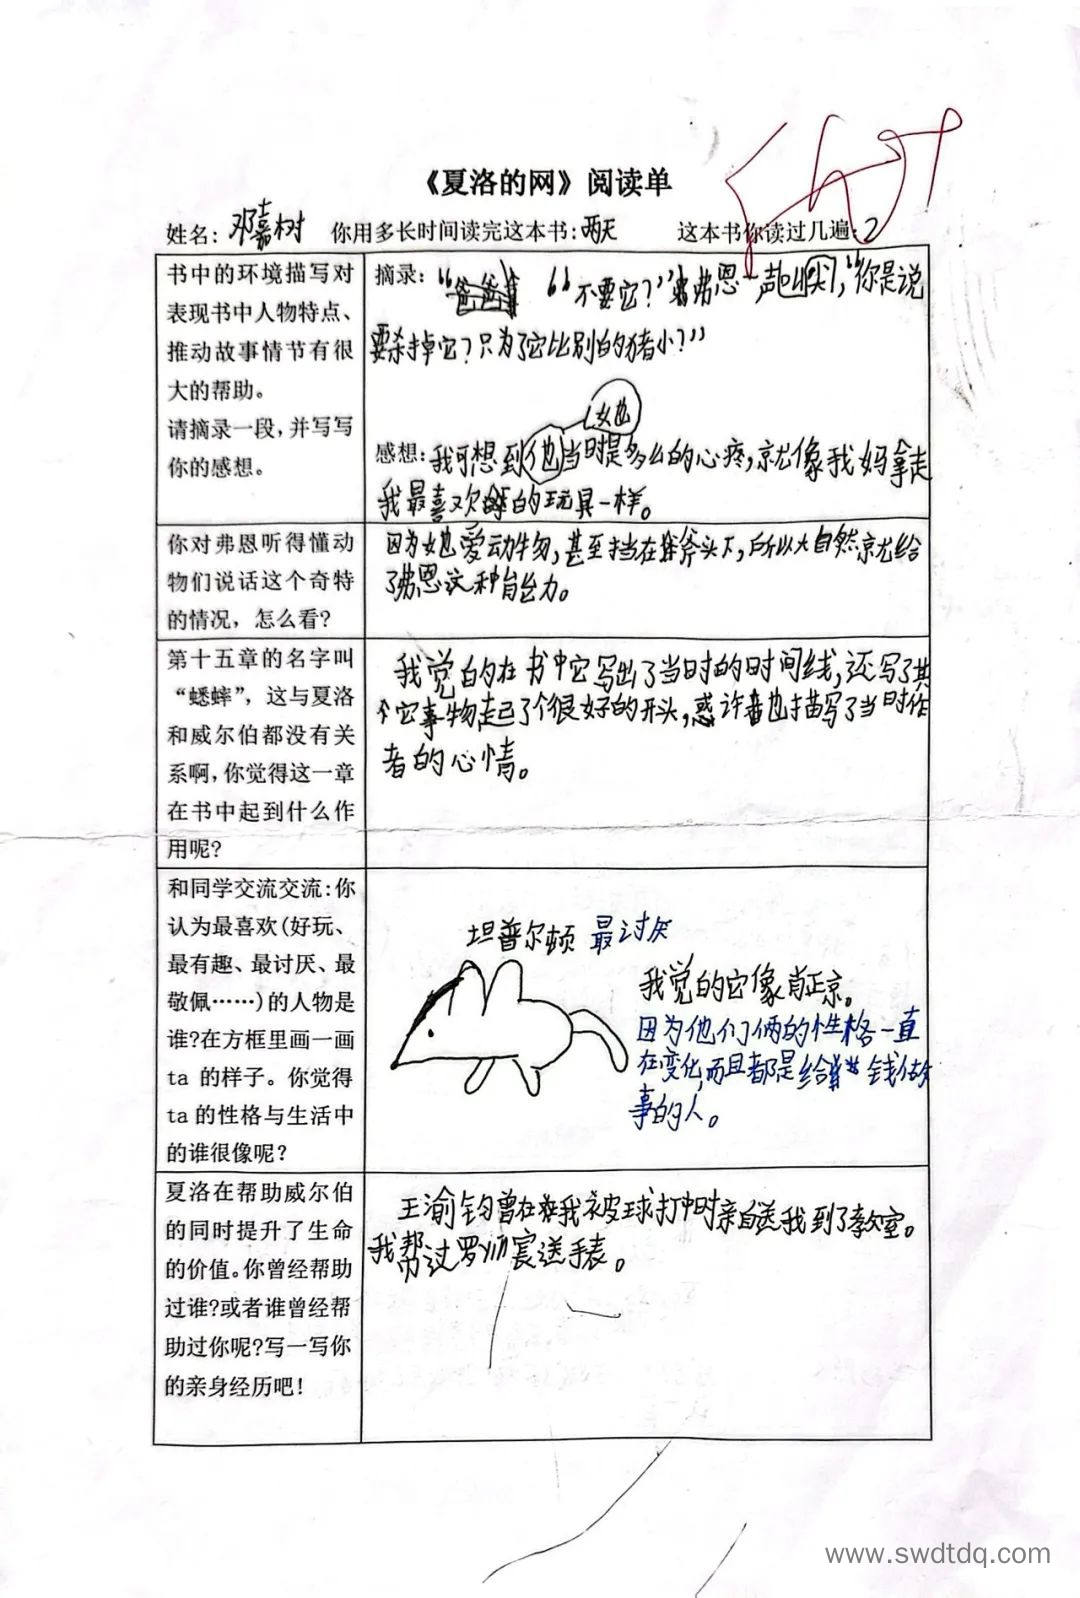 《夏洛的网》阅读单
姓名: 邓嘉树 你用多长时间读完这本书: 两天 这本书你读过几遍: 2
书中的环境描写对
表现书中人物特点、
推动故事情节有很
大的帮助。
请摘录一段,并写写
你的感想。
摘录: “不要它?”弗恩一声叫尖,“你是说
要杀掉它?只为了它比别的猪小?”
她
感想: 我可想到他当时是多么的心疼,就像我妈拿走
我最喜欢的玩具一样。
你对弗恩听得懂动
物们说话这个奇特
的情况, 怎么看?
因为她爱动物,甚至挡在斧头下,所以大自然就给
了弗恩这种能力。
第十五章的名字叫
“蟋蟀”, 这与夏洛
和威尔伯都没有关
系啊, 你觉得这一章
在书中起到什么作
用呢?
我觉的在书中它写出了当时的时间线,还写了其
它事物起了个很好的开头,或许也描写了当时作
者的心情。
和同学交流交流:你
认为最喜欢(好玩、
最有趣、最讨厌、最
敬佩……)的人物是
谁?在方框里画一画
ta 的样子。你觉得
ta 的性格与生活中
的谁很像呢?
坦普尔顿 最讨厌
我觉的它像肖正京。
因为他们俩的性格一直
在变化,而且都是给钱做
事的人。
夏洛在帮助威尔伯
的同时提升了生命
的价值。你曾经帮助
过谁?或者谁曾经帮
助过你呢?写一写你
的亲身经历吧!
王渝钧曾在我被球打中时亲自送我到了教室。
我帮过罗宸送手表。
www.swdtdq.com